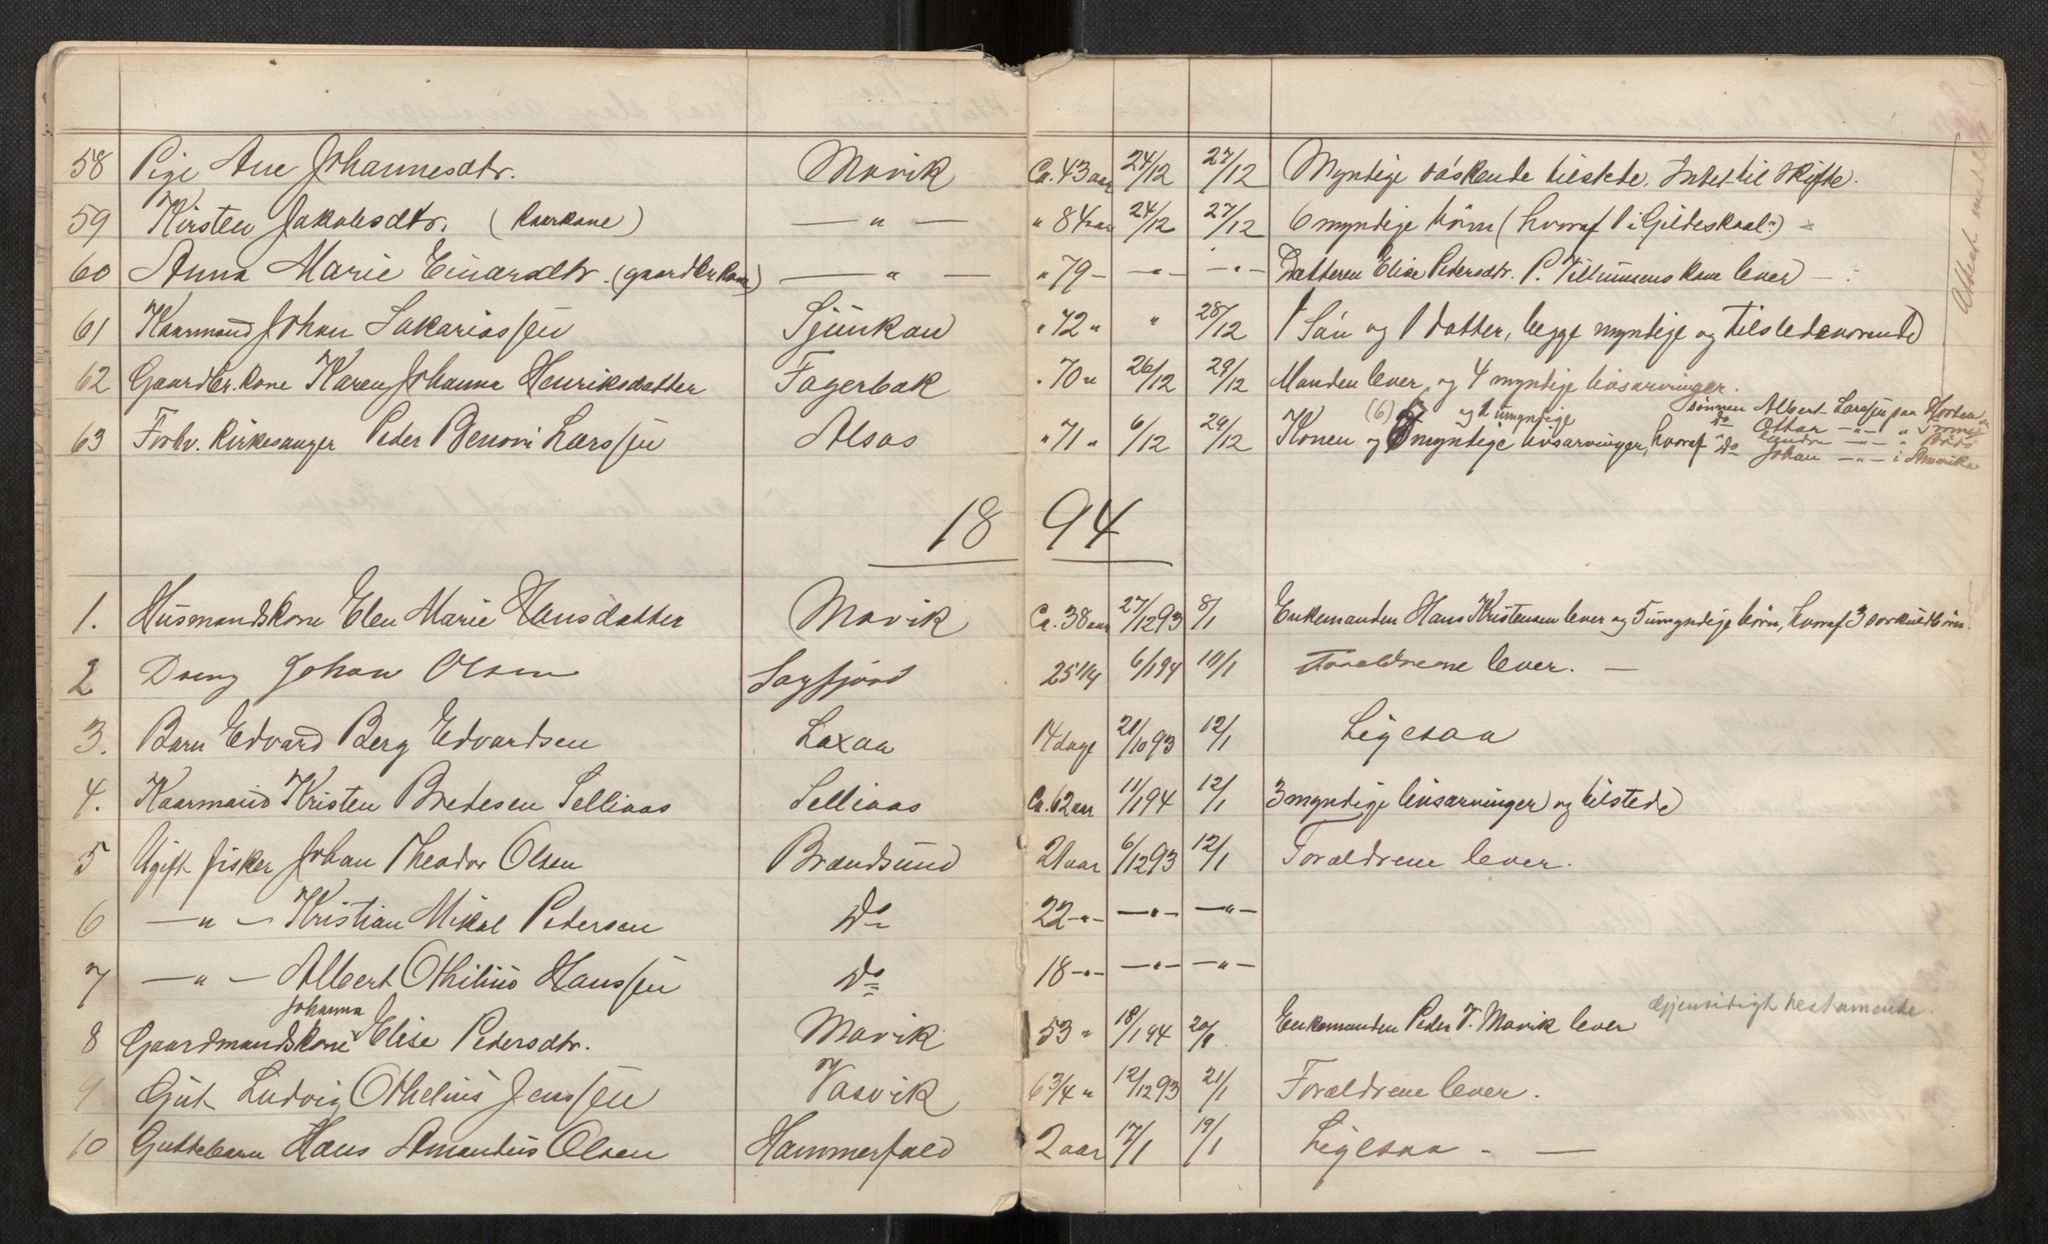 58 Pige Ane Johannesdtr. Mørvik Ca. 43 aar 24/12 27/12 Myndige søskende tilstede. Intet til skifte.
59 Kirsten Jakobsdtr. (kaarkone) — " — " 84 aar 24/12 27/12 6 myndige børn (hvoraf 1 i Gildeskaal")
60 Anna Marie Einarsdtr. (gaardbr.kone) — " — " 79 — — " — — " — Datteren Elise Pedersdtr. P. Tillumsens kone lever —
61 Kaarmand Johan Sakariassen Sjunkan " 72 " " 28/12 1 Søn og 1 datter, begge myndige og tilstedeværende
62 Gaardbr. kone Karen Johanna Henriksdatter Fagerbak " 70 " 26/12 29/12 Manden lever og 4 myndige livsarvinger.
(6) og 1 umyndige sønnen Albert Larssen paa Horten
63 Forhv. kirkesanger Peder Benoni Larssen Alsos " 71 " 6/12 29/12 Konen og myndige livsarvinger, hvoraf
do Ottar — " — "
do — " — " Bodø
do Johan — " — i Amerika
Attest
18 94
1. Husmandskone Elen Marie Hansdatter Mørvik Ca. 38 aar 27/12 93 8/1 Enkemanden Hans Kristensen lever og 5 umyndige børn, hvoraf 3 særkuldbørn.
2 Dreng Johan Olsen Sagfjord 25 1/4 6/1 94 10/1 Forældrene lever. —
3. Barn Edvard Berg Edvardsen Laxaa 14 dage 21/10 93 12/1 Ligesaa
4. Kaarmand Kristen Bredesen Selliaas Selliaas Ca. 62 aar 11/1 94 12/1 3 myndige livsarvinger og tilstede
5 Ugift fisker Johan Theodor Olsen Brændsund 21 aar 6/12 93 12/1 Forældrene lever.
6 — " — Kristian Mikal Pedersen Do 22 — " — — " — — " —
7 — " — Albert Othilius Hanssen Do 18 — " — — " — — " —
Johanna
8 Gaardmandskone Elise Pedersdtr. Mørvik 53 " 18/1 94 20/1 Enkemanden Peder T. Mørvik lever Gjensidigt testamente.
9 Gut Ludvig Othelius Jenssen Vasvik 6 3/4 " 12/12 93 21/1 Forældrene lever.
10 Guttebarn Hans Amandus Olsen Hammerfald 2 aar 17/1 19/1 Ligesaa - —